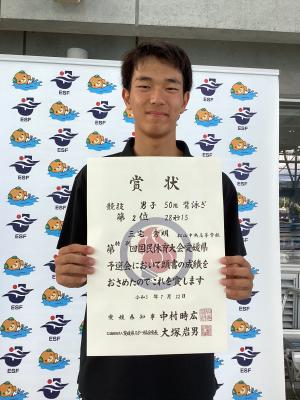 賞状
競技 男子 50m 背泳ぎ
第 2 位 28秒15
三宅 松山中央高等学校
回国民体育大会愛媛県
予選会において頭書の成績を
おさめたのでこれを賞します
令和5年7月22日
愛媛県知事 中村時広
大塚岩男
ESF
ESF
ESF
ESF
ESF
ESF
ESF
ESF